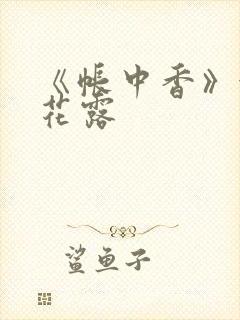 《帐中香》
花露
鲨鱼子